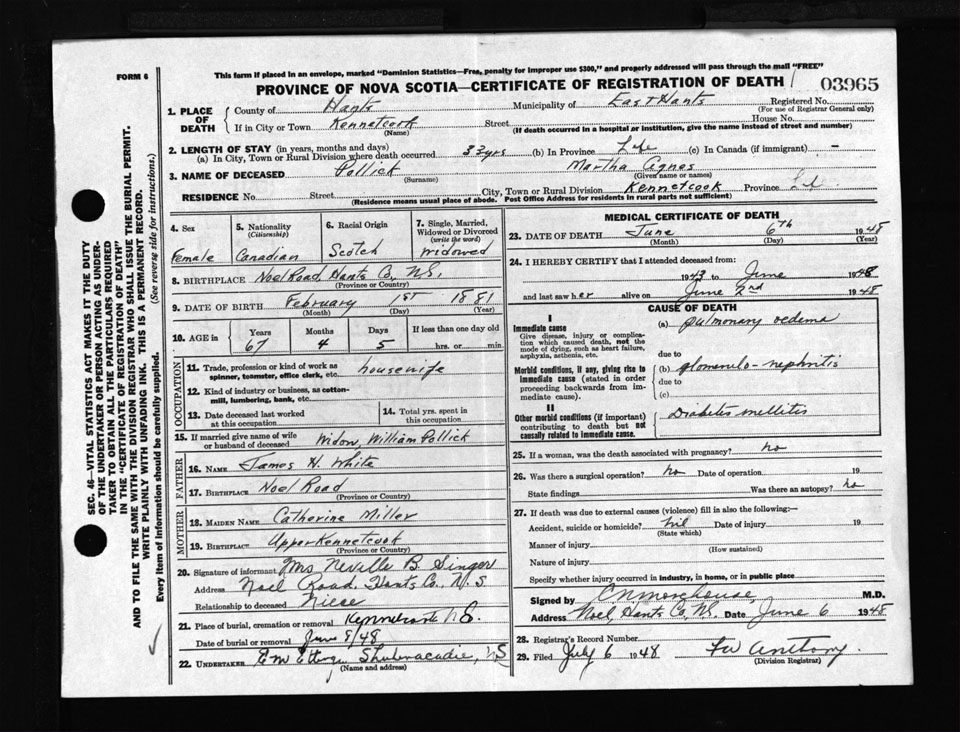 FORM 6
This form if placed in an envelope, marked "Dominion Statistics—Free, penalty for improper use $300," and properly addressed will pass through the mail "FREE"
PROVINCE OF NOVA SCOTIA—CERTIFICATE OF REGISTRATION OF DEATH
03965
1. PLACE OF DEATH
County of Hants Municipality of East Hants Registered No.
(For use of Registrar General only)
If in City or Town Kennetcook Street House No.
(Name) (If death occurred in a hospital or institution, give the name instead of street and number)
2. LENGTH OF STAY (in years, months and days)
(a) In City, Town or Rural Division where death occurred 33 yrs (b) In Province Life (c) In Canada (if immigrant) -
3. NAME OF DECEASED Pollick Martha Agnes
(Surname) (Given name or names)
RESIDENCE No. Street City, Town or Rural Division Kennetcook Province
(Residence means usual place of abode. Post Office Address for residents in rural parts not sufficient)
4. Sex Female
5. Nationality (Citizenship) Canadian
6. Racial Origin Scotch
7. Single, Married, Widowed or Divorced (write the word) Widowed
8. BIRTHPLACE Noel Road, Hants Co, NS.
(Province or Country)
9. DATE OF BIRTH February 1st 1881
(Month) (Day) (Year)
10. AGE in Years Months Days If less than one day old
67 4 5 hrs. or min.
OCCUPATION
11. Trade, profession or kind of work as spinner, teamster, office clerk, etc. housewife
12. Kind of industry or business, as cotton-mill, lumbering, bank, etc.
13. Date deceased last worked at this occupation
14. Total yrs. spent in this occupation
15. If married give name of wife or husband of deceased Widow, William Pollick
FATHER
16. NAME James H. White
17. BIRTHPLACE Noel Road
(Province or Country)
MOTHER
18. MAIDEN NAME Catherine Miller
19. BIRTHPLACE Upper Kennetcook
(Province or Country)
20. Signature of informant Mrs Neville B. Singer
Address Noel Road. Hants Co. N. S
Relationship to deceased Niece
21. Place of burial, cremation or removal Kennetcook NS.
Date of burial or removal June 8/48
22. UNDERTAKER E M Shubenacadie, NS
(Name and address)
MEDICAL CERTIFICATE OF DEATH
23. DATE OF DEATH June 6th 1948
(Month) (Day) (Year)
24. I HEREBY CERTIFY that I attended deceased from:
1943 to June 1948
and last saw her alive on June 3rd 1948
CAUSE OF DEATH
I
Immediate cause
Give disease, injury or complication which caused death, not the mode of dying, such as heart failure, asphyxia, asthenia, etc.
(a) pulmonary oedema
due to
Morbid conditions, if any, giving rise to immediate cause (stated in order proceeding backwards from immediate cause).
(b) glomerulo-nephritis
due to
(c)
II
Other morbid conditions (if important) contributing to death but not causally related to immediate cause.
Diabetes mellitis
25. If a woman, was the death associated with pregnancy? no
26. Was there a surgical operation? no Date of operation 19
State findings Was there an autopsy? no
27. If death was due to external causes (violence) fill in also the following:—
Accident, suicide or homicide? nil Date of injury 19
(State which)
Manner of injury
(How sustained)
Nature of injury
Specify whether injury occurred in industry, in home, or in public place
Signed by M.D.
Address Noel, Hants Co, NS. Date June 6 1948
28. Registrar's Record Number
29. Filed July 6 1948 Anthony
(Division Registrar)
SEC. 46—VITAL STATISTICS ACT MAKES IT THE DUTY
OF THE UNDERTAKER OR PERSON ACTING AS UNDER-
TAKER TO OBTAIN ALL THE PARTICULARS REQUIRED
IN THE "CERTIFICATE OF REGISTRATION OF DEATH"
AND TO FILE THE SAME WITH THE DIVISION REGISTRAR WHO SHALL ISSUE THE BURIAL PERMIT.
WRITE PLAINLY WITH UNFADING INK. THIS IS A PERMANENT RECORD.
Every item of information should be carefully supplied. (See reverse side for instructions.)